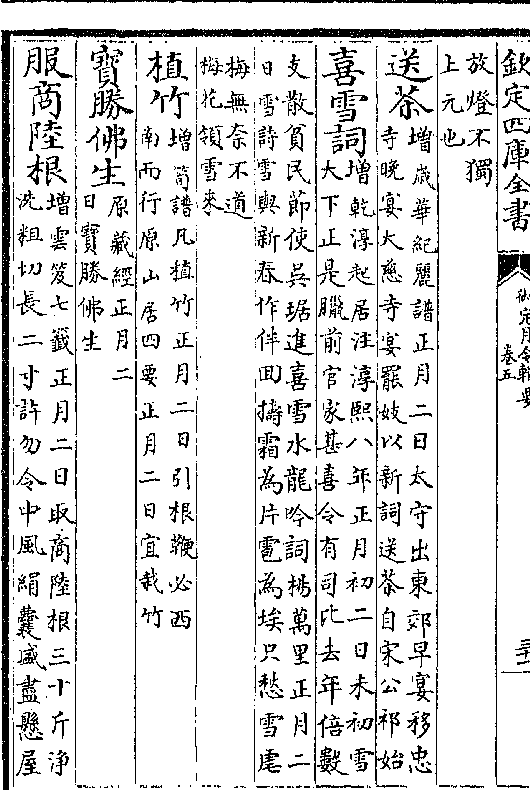 欽定四庫全書
御定月令輯要
卷五
放燈不獨
上元也
送茶增歲華紀麗譜正月二日太守出東郊早宴移忠
寺晚宴大慈寺宴罷妓以新詞送茶自宋公祁始
喜雪詞增乾淳起居注淳熙八年正月初二日未初雪
大下正是臘前官家甚喜令有司比去年倍數
支散貧民節使吳琚進喜雪水龍吟詞楊萬里正月二
日雪詩雪與新春作伴回擣霜為片雹為埃只愁雪虐
梅無奈不道
梅花領雪來
植竹增筍譜凡植竹正月二日引根鞭必西
南而行原山居四要正月二日宜栽竹
寶勝佛生原藏經正月二
日寶勝佛生
服商陸根增雲笈七籤正月二日取商陸根三十斤淨
洗粗切長二寸許勿令中風絹囊盛盡懸屋